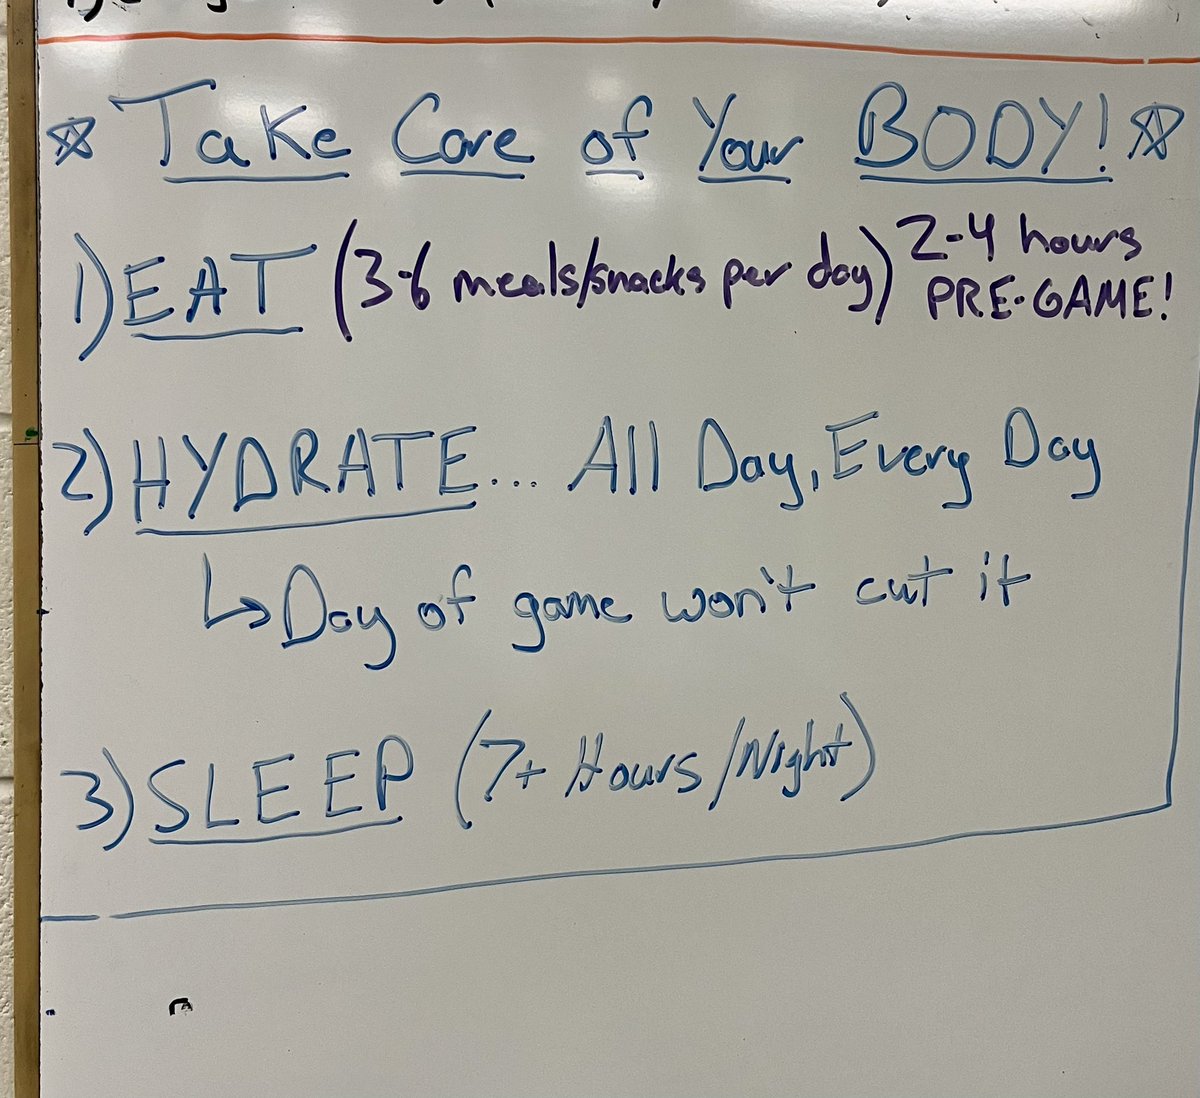 ☆ Take Care of Your BODY! ☆
1) EAT (3-6 meals/snacks per day) 2-4 hours
PRE-GAME!
2) HYDRATE... All Day, Every Day
↳ Day of game won't cut it
3) SLEEP (7+ Hours/Night)